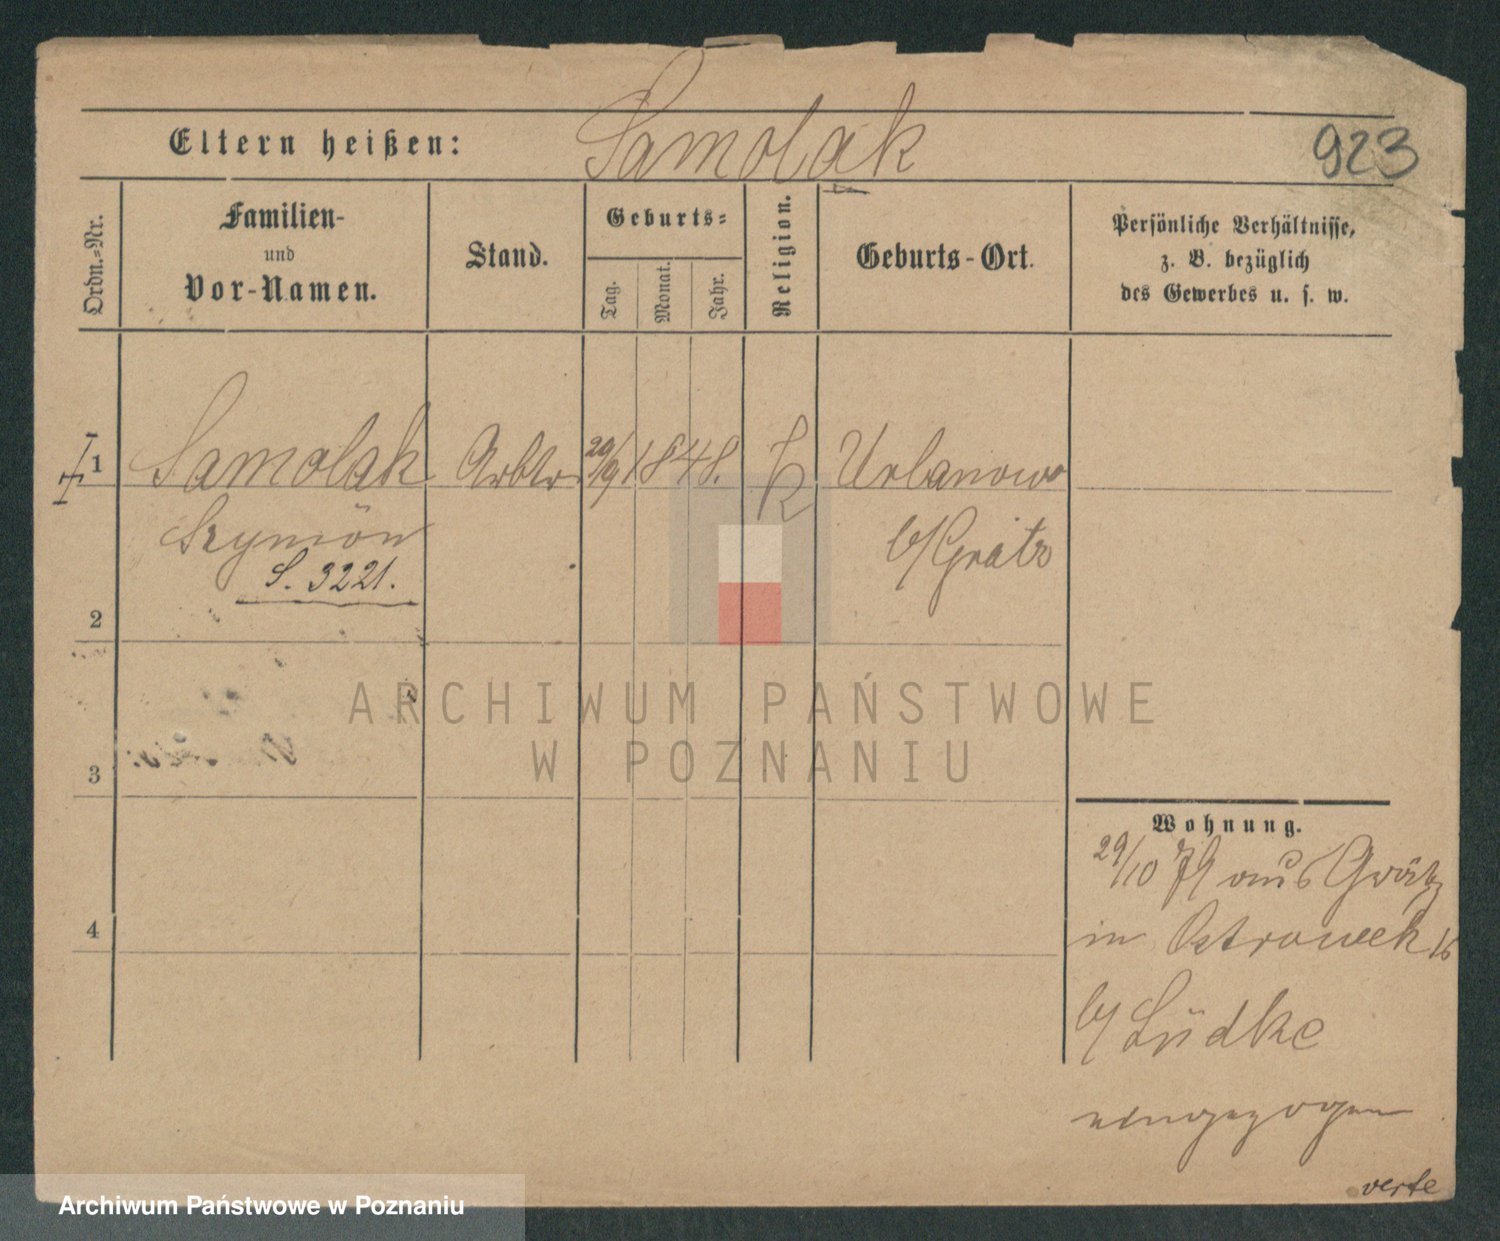 923
Eltern heißen: Samolak
Ordn.=Nr.
Familien-
und
Vor-Namen.
Stand.
Geburts=
Tag.
Monat.
Jahr.
Religion.
Geburts-Ort.
Persönliche Verhältnisse,
z. B. bezüglich
des Gewerbes u. s. w.
1 Samolak Arbtr 1848. K Urbanowo
Szymón b/Grätz
S. 3221.
2
3
4
Wohnung.
29/10 79 aus Grätz
in Ostrowek 16
b/ Lüdke
eingezogen
verte
ARCHIWUM PAŃSTWOWE
W POZNANIU
Archiwum Państwowe w Poznaniu